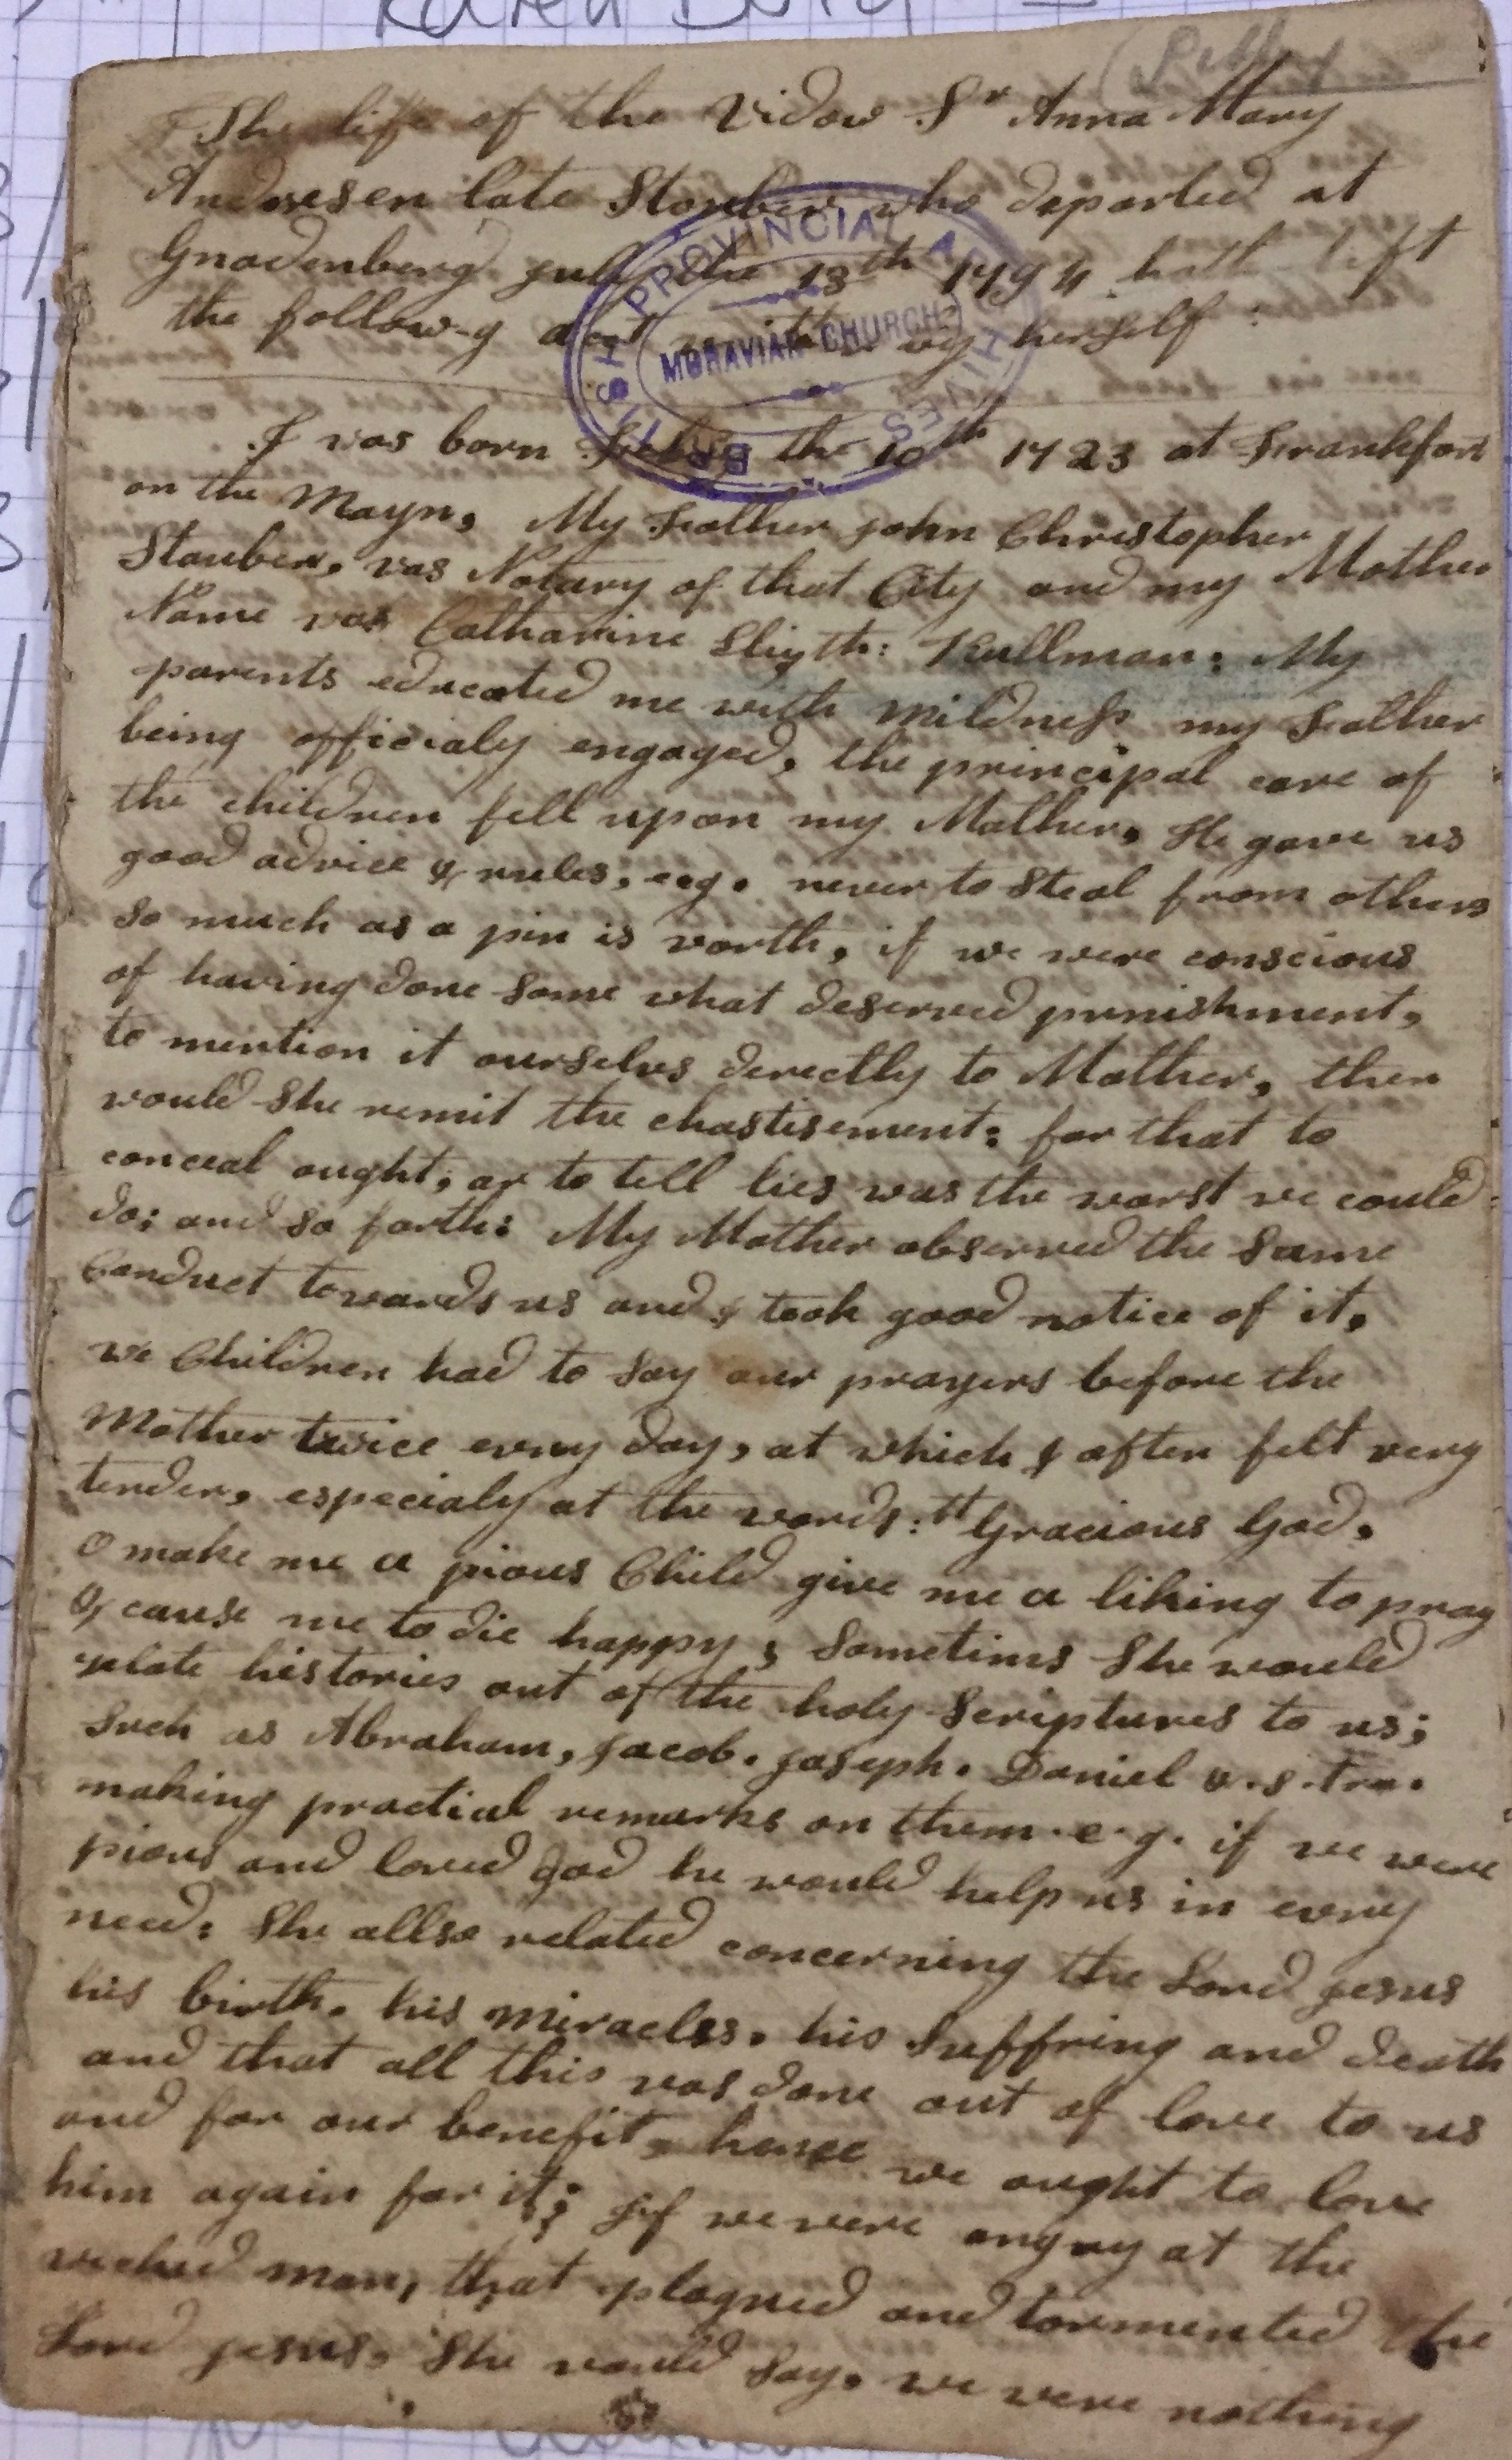 The life of the Vidow Sr Anna Mary
Andresen late Stauber, who departed at
Gnadenberg July the 13th 1794 hath left
the follow-g acct written by herself:
BRITISH PROVINCIAL ARCHIVES
MORAVIAN CHURCH
I vas born Feby the 10th 1723 at Frankfort
on the Mayn, My Father John Christopher
Stauber, vas Notary of that City and my Mother
Name vas Catharine Kullman: My
parents educated me with mildness my Father
being officialy engaged, the principal care of
the children fell upon my Mather, He gave us
good advice & rules, e.g. never to steal from others
so much as a pin is vorth, if we were conscious
of having done some what deserved punishment,
to mention it ourselves derectly to Mother, then
would She remit the chastisement: for that to
conceal ought, or to tell lies was the worst we could
do; and so forth: My Mother observed the same
Conduct towards us and I took good notice of it,
we Children had to say our prayers before the
Mother twice every day, at which I often felt very
tender, especialy at the words: "Gracious God,
O make me a pious Child give me a liking to pray
& cause me to die happy; Sometims She would
relate histories out of the holy Scriptures to us;
Such as Abraham, Jacob. Joseph. Daniel
making practial remarks on them. e.g. if we were
pious and loved God he would help us in every
need: She allso related concerning the Lord Jesus
his birth. his miracles. his Suffring and death
and that all this vas done out of love to us
and for our benefit, hence we ought to love
him again for it; If we were angry at the
vicked man, that plagued and tormented the
Lord Jesus, She vould say, we were nothing